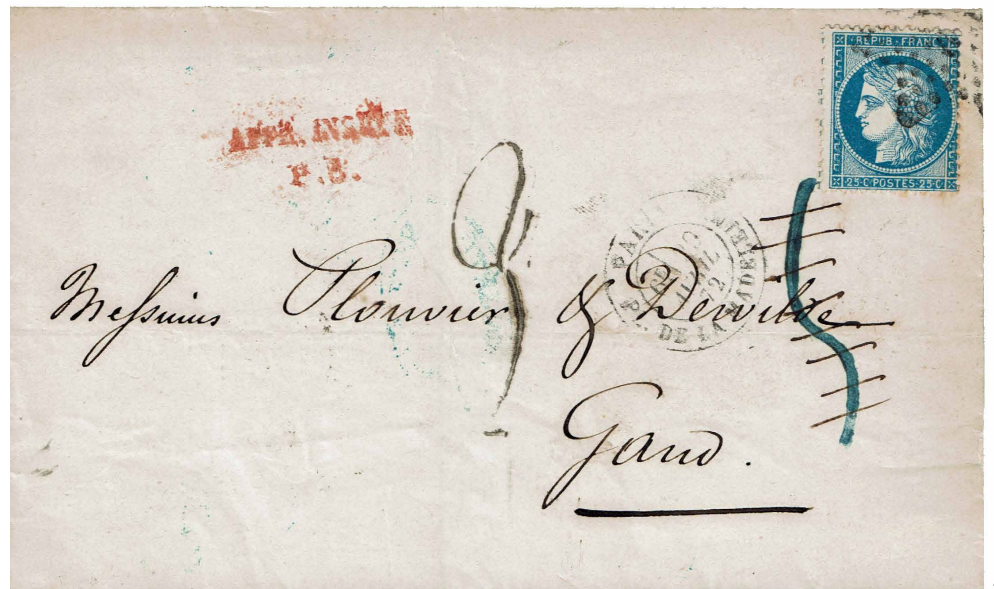 REPUB · FRANC
25 · C · POSTES · 25 · C
AFFR. INSUFF
P.3.
PARIS
PL. DE LA MADELEINE
Messieurs Plouvier & Dewilde
Gand.